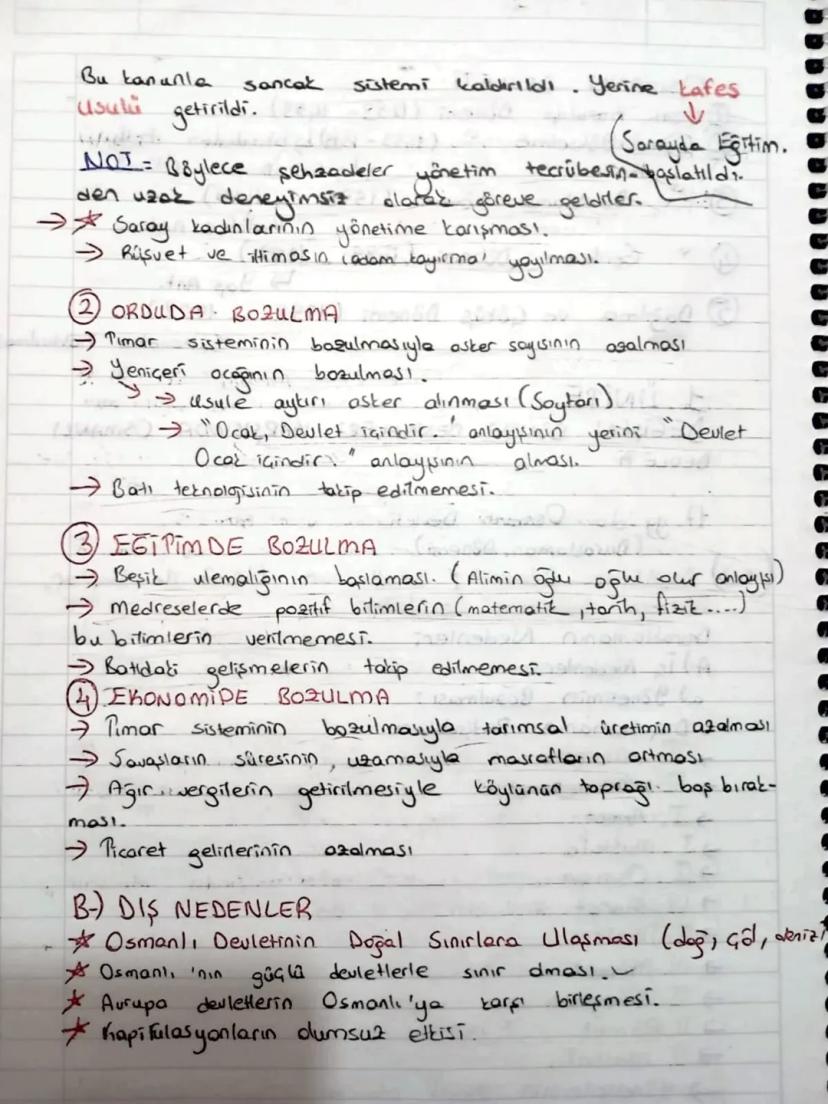 Bu kanunla sancak sistemi kaldırıldı. Yerine kafes
usulü getirildi.
(Sarayda Eğitim.
başlatıldı.
NOT = Böylece şehzadeler yönetim tecrübesin-
den uzak deneyimsiz olarak göreve geldiler.
→ ★ Saray kadınlarının yönetime karışması.
→ Rüşvet ve iltimasın (adam kayırma) yayılması.
② ORDUDA BOZULMA
→ Tımar sisteminin bozulmasıyla asker sayısının azalması
→ Yeniçeri ocağının bozulması.
→ Usule aykırı asker alınması (Soytarı)
→ "Ocak, Devlet içindir." anlayışının yerini "Devlet
Ocak içindir." anlayışının alması.
→ Batı teknolojisinin takip edilmemesi.
③ EĞİTİMDE BOZULMA
→ Beşik ulemalığının başlaması. (Alimin oğlu oğlu olur anlayışı)
→ Medreselerde pozitif bilimlerin (matematik, tarih, fizik ....)
bu bilimlerin verilmemesi.
→ Batıdaki gelişmelerin takip edilmemesi.
④ EKONOMİDE BOZULMA
→ Tımar sisteminin bozulmasıyla tarımsal üretimin azalması
→ Savaşların süresinin, uzamasıyla masrafların artması
→ Ağır vergilerin getirilmesiyle köylünün toprağı boş bırak-
ması.
→ Ticaret gelirlerinin azalması
B-) DIŞ NEDENLER
★ Osmanlı Devletinin Doğal Sınırlara Ulaşması (dağ, göl, deniz)
★ Osmanlı'nın güçlü devletlerle sınır olması.
★ Avrupa devletlerin Osmanlı'ya karşı birleşmesi.
★ Kapitulasyonların olumsuz etkisi.